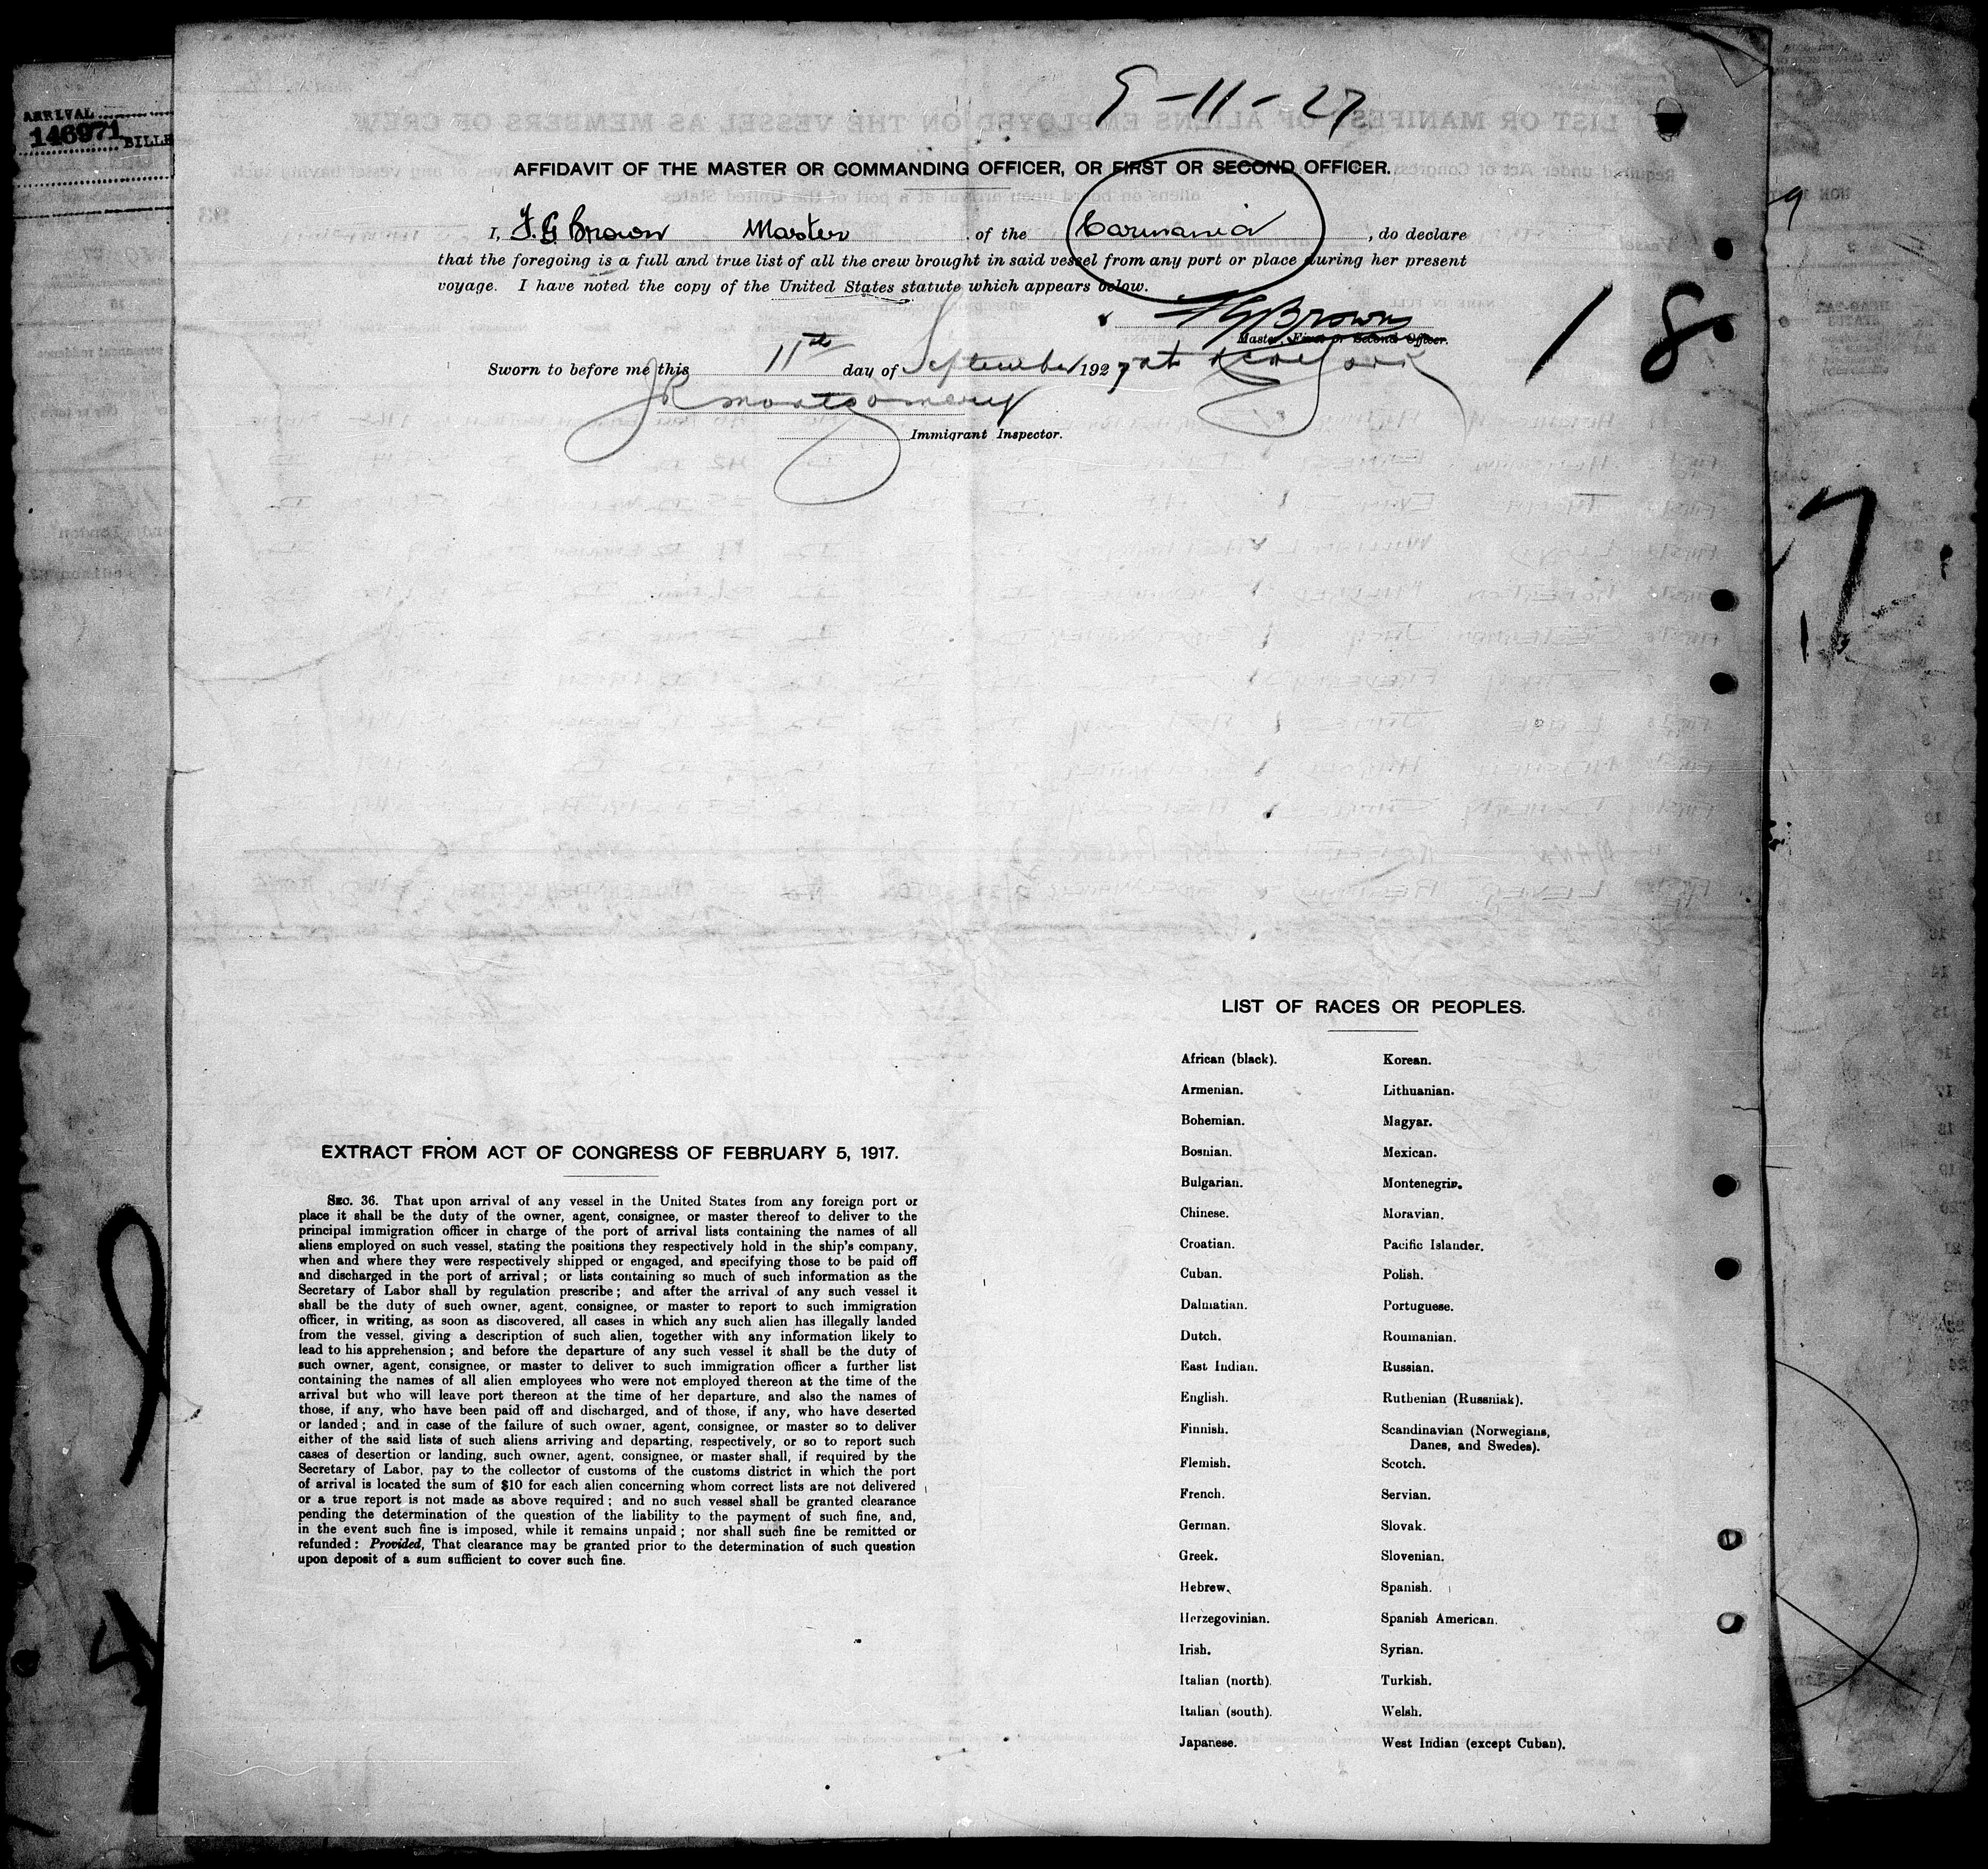 9-11-27
ARRIVAL
146971 BILLE
AFFIDAVIT OF THE MASTER OR COMMANDING OFFICER, OR FIRST OR SECOND OFFICER.
I, F. G Brown Master of the Carmania, do declare
that the foregoing is a full and true list of all the crew brought in said vessel from any port or place during her present
voyage. I have noted the copy of the United States statute which appears below.
FGBrown
Master, First or Second Officer.
18
Sworn to before me this 11th day of September 1927 at New York
JR Montgomery
Immigrant Inspector.
LIST OF RACES OR PEOPLES.
African (black). Korean.
Armenian. Lithuanian.
Bohemian. Magyar.
Bosnian. Mexican.
Bulgarian. Montenegrin.
Chinese. Moravian.
Croatian. Pacific Islander.
Cuban. Polish.
Dalmatian. Portuguese.
Dutch. Roumanian.
East Indian. Russian.
English. Ruthenian (Russniak).
Finnish. Scandinavian (Norwegians,
Danes, and Swedes).
Flemish. Scotch.
French. Servian.
German. Slovak.
Greek. Slovenian.
Hebrew. Spanish.
Herzegovinian. Spanish American.
Irish. Syrian.
Italian (north). Turkish.
Italian (south). Welsh.
Japanese. West Indian (except Cuban).
EXTRACT FROM ACT OF CONGRESS OF FEBRUARY 5, 1917.
SEC. 36. That upon arrival of any vessel in the United States from any foreign port or
place it shall be the duty of the owner, agent, consignee, or master thereof to deliver to the
principal immigration officer in charge of the port of arrival lists containing the names of all
aliens employed on such vessel, stating the positions they respectively hold in the ship's company,
when and where they were respectively shipped or engaged, and specifying those to be paid off
and discharged in the port of arrival; or lists containing so much of such information as the
Secretary of Labor shall by regulation prescribe; and after the arrival of any such vessel it
shall be the duty of such owner, agent, consignee, or master to report to such immigration
officer, in writing, as soon as discovered, all cases in which any such alien has illegally landed
from the vessel, giving a description of such alien, together with any information likely to
lead to his apprehension; and before the departure of any such vessel it shall be the duty of
such owner, agent, consignee, or master to deliver to such immigration officer a further list
containing the names of all alien employees who were not employed thereon at the time of the
arrival but who will leave port thereon at the time of her departure, and also the names of
those, if any, who have been paid off and discharged, and of those, if any, who have deserted
or landed; and in case of the failure of such owner, agent, consignee, or master so to deliver
either of the said lists of such aliens arriving and departing, respectively, or so to report such
cases of desertion or landing, such owner, agent, consignee, or master shall, if required by the
Secretary of Labor, pay to the collector of customs of the customs district in which the port
of arrival is located the sum of $10 for each alien concerning whom correct lists are not delivered
or a true report is not made as above required; and no such vessel shall be granted clearance
pending the determination of the question of the liability to the payment of such fine, and,
in the event such fine is imposed, while it remains unpaid; nor shall such fine be remitted or
refunded: Provided, That clearance may be granted prior to the determination of such question
upon deposit of a sum sufficient to cover such fine.